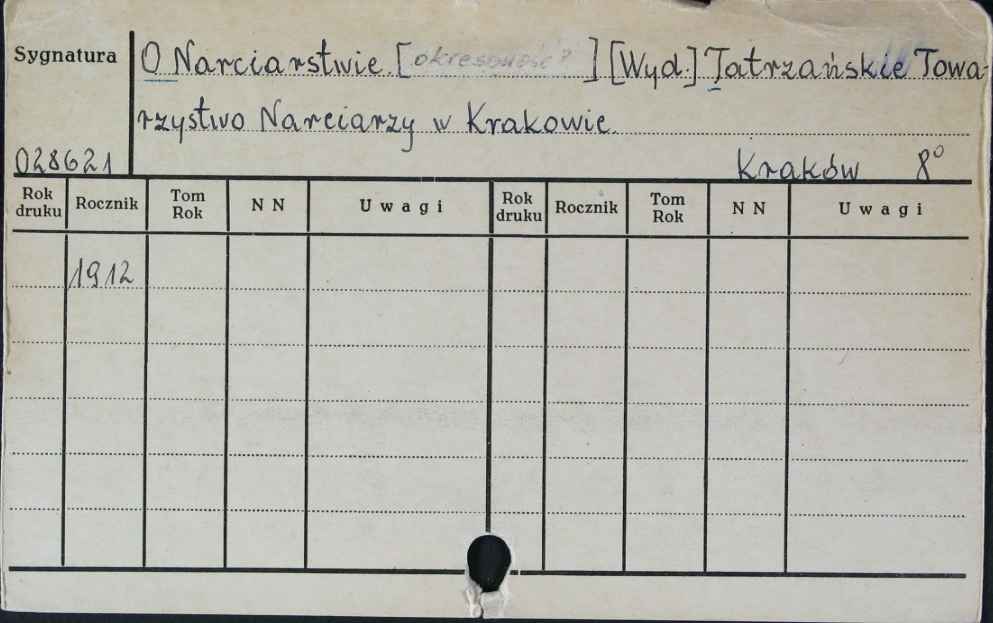 Sygnatura
O Narciarstwie. [okresowość?] [Wyd.] Tatrzańskie Towa-
rzystwo Narciarzy w Krakowie.
028621
Kraków 8°
Rok druku Rocznik Tom Rok N N Uwagi Rok druku Rocznik Tom Rok N N Uwagi
1912